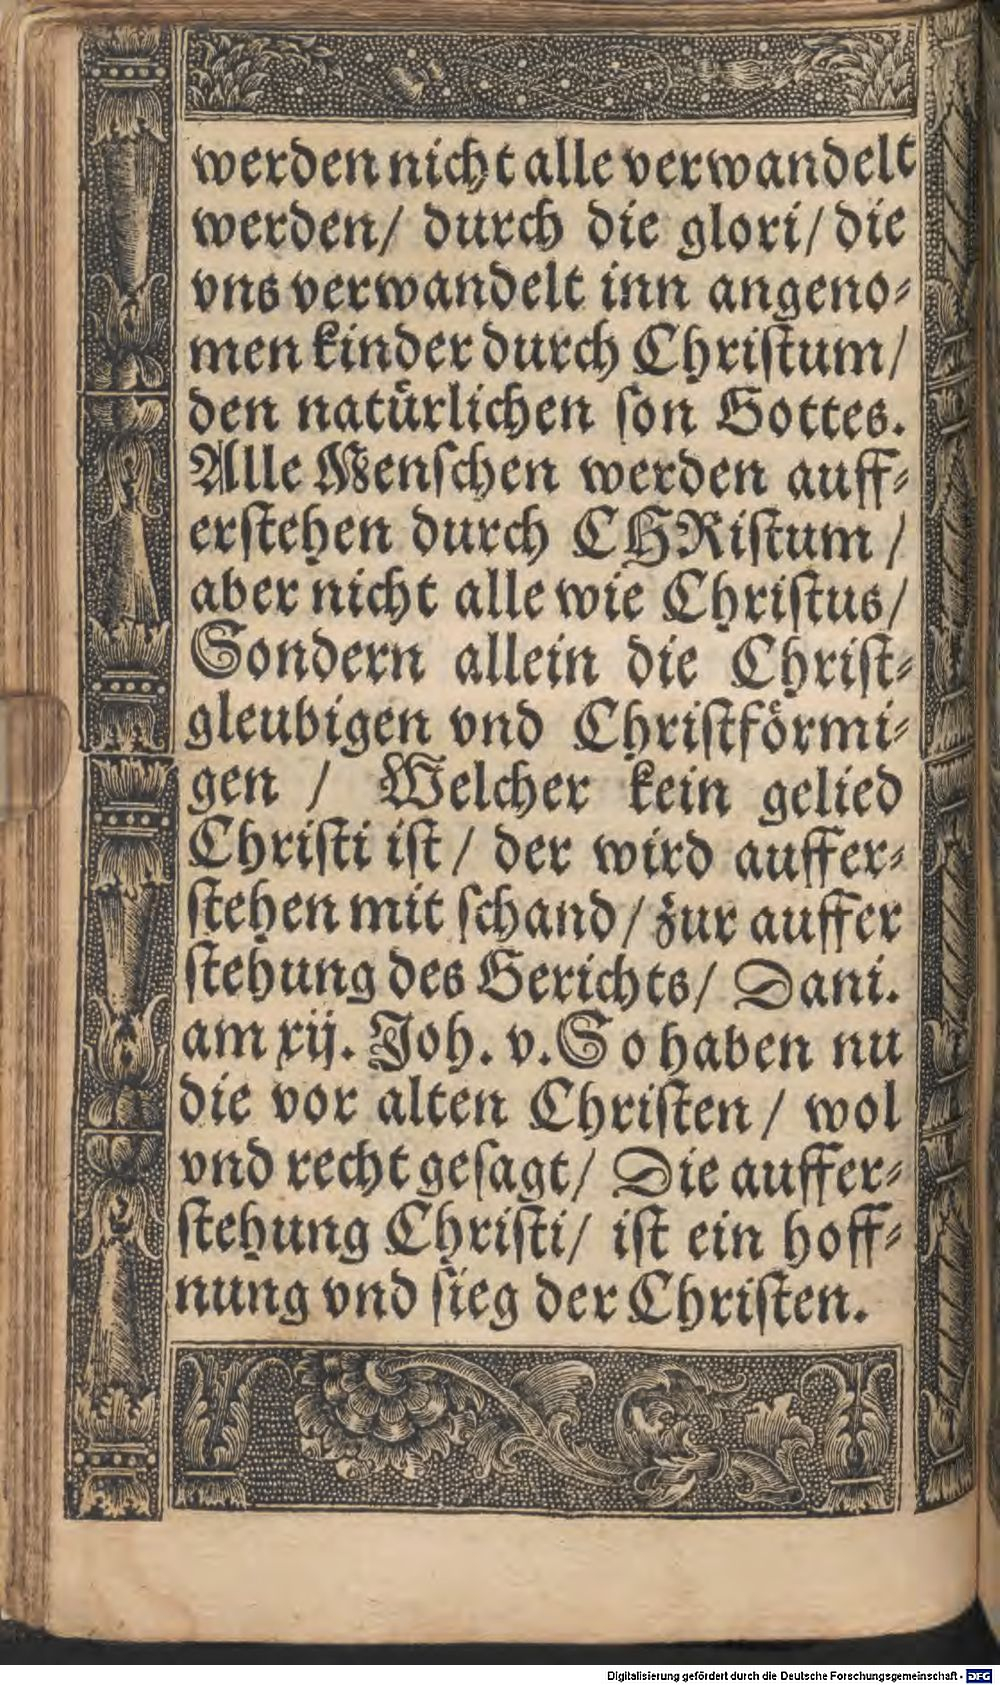 werden nicht alle verwandelt
werden/ durch die glori/ die
vns verwandelt inn angeno⸗
men kinder durch Christum/
den natürlichen son Gottes.
Alle Menschen werden auff⸗
erstehen durch CHRistum /
aber nicht alle wie Christus/
Sondern allein die Christ⸗
gleubigen vnd Christförmi⸗
gen / Welcher kein gelied
Christi ist / der wird auffer⸗
stehen mit schand / zur auffer
stehung des Gerichts/ Dani.
am xij. Joh. v. So haben nu
die vor alten Christen / wol
vnd recht gesagt/ Die auffer⸗
stehung Christi/ ist ein hoff⸗
nung vnd sieg der Christen.
Digitalisierung gefördert durch die Deutsche Forschungsgemeinschaft - DFG